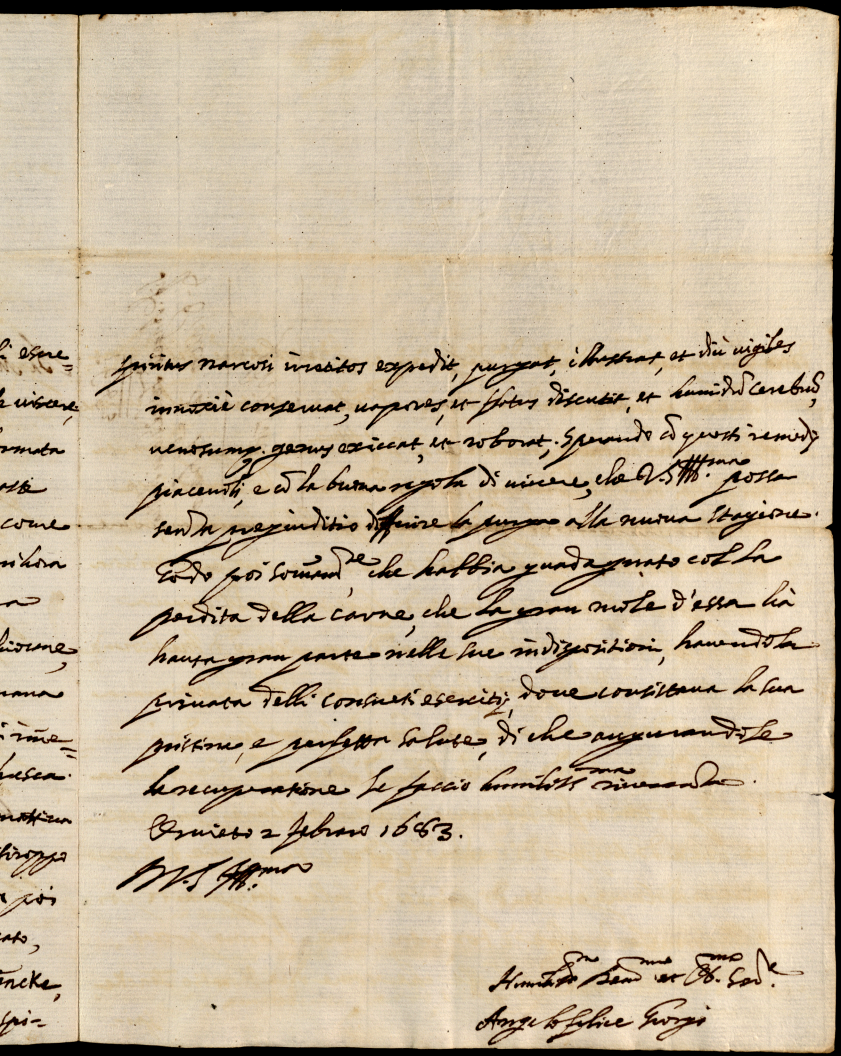 li espe=
le viscere,
ormata
come
lhora
giovane,
mana
i ime=
fresca.
mattina
siroppo
poi
cato,
encke,
spi=
spiritus narcosi irretitos expedit, purgat, illustrat, et diù vigiles
innoxiè conservat, vapores, et flatus discutit, et humidũ cerebrũ,
nervosumq. genus exiccat, et roborat. Sperando cõ questi remedij
piacevoli, e cõ la buona regola di vivere, che V.S. Ill.ma possa
senza pregiuditio differire la purga alla nuova stagione.
Godo poi somam.te che habbia guadagnato colla
perdita della carne, che la gran mole d'essa hà
hauta gran parte nelle sue indispositioni, havendola
privata delli consueti esercitij, dove consisteva la sua
pristina, e perfetta salute, di che augurandole
la recuperatione le faccio humiliss.ma riverenza.
Orvieto 2 febraro 1683.
V.S. Ill.ma
Humiliss.mo Dev.mo et Obl.mo Ser.e
Angelo felice Giorgi